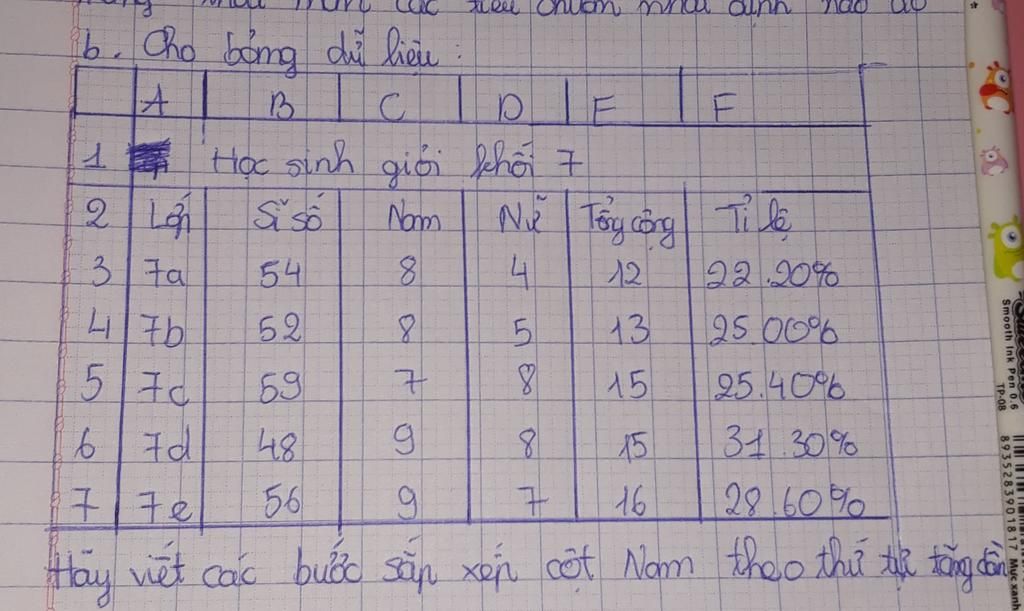 b. Cho bảng dữ liệu:
A B C D E F
1 Học sinh giỏi khối 7
2 Lớp Sĩ số Nam Nữ Tổg cộng Tỉ lệ
3 7a 54 8 4 12 22.20%
4 7b 52 8 5 13 25.00%
5 7c 59 7 8 15 25.40%
6 7d 48 9 8 15 31.30%
7 7e 56 9 7 16 28.60%
Hãy viết các bước sắp xếp cột Nam theo thứ tự tăng dần
Smooth Ink Pen 0.6
TP-08
8935283901817 Mực xanh